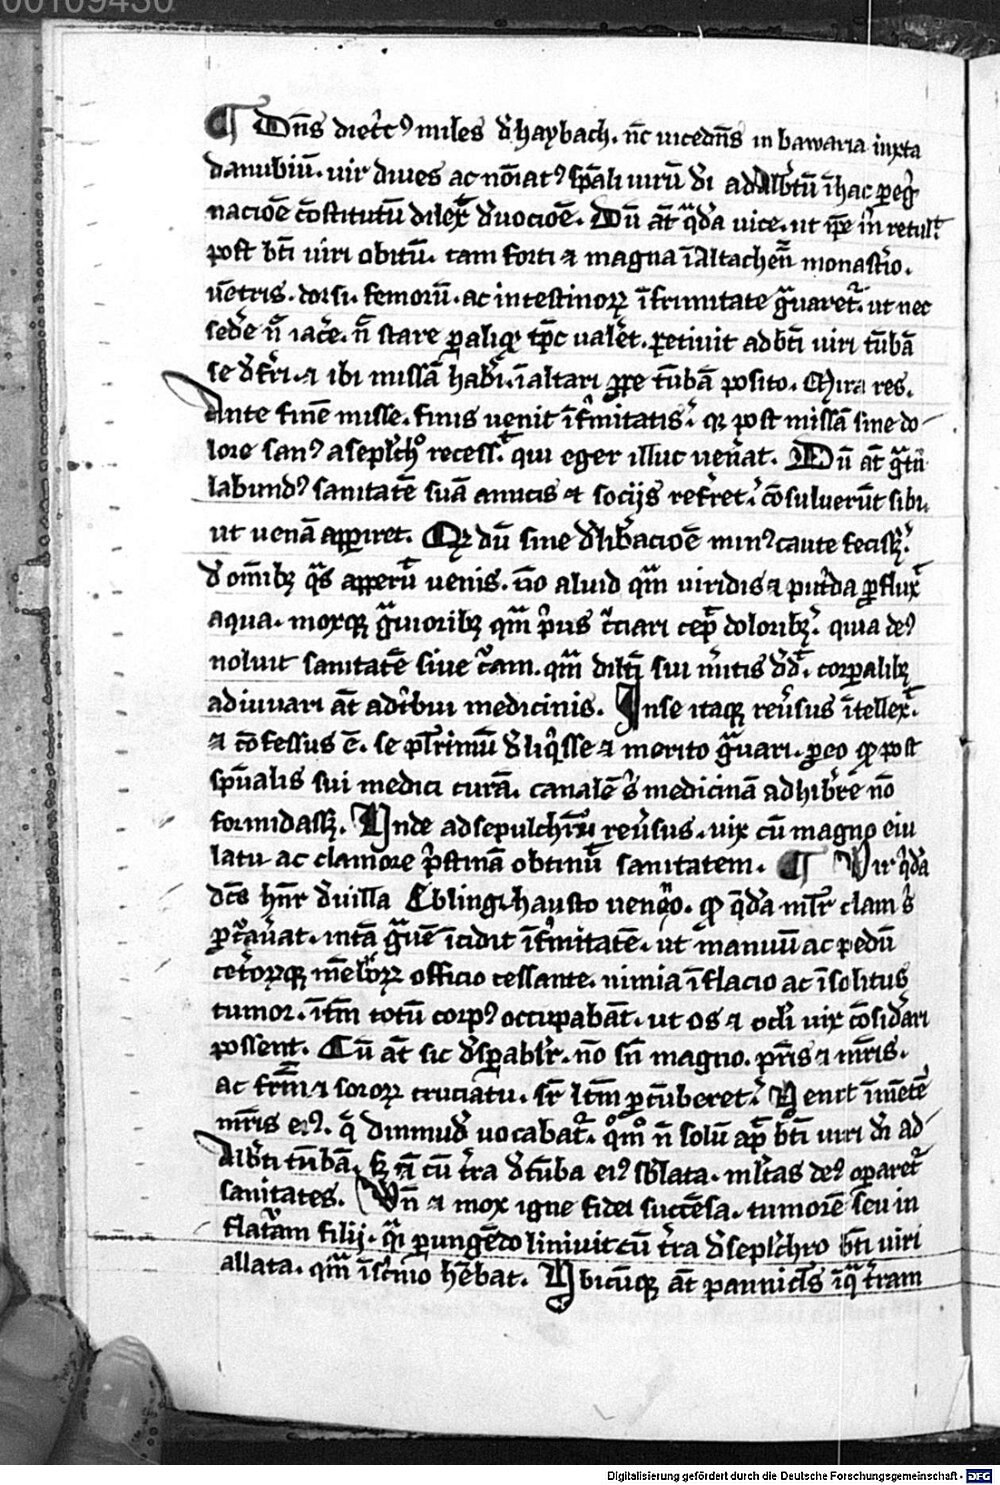 00109430
¶ Dn̄s diet̾cꝰ miles d̾ haybach. nc̄ uicedn̄s in bawaria iuxta
danubiū. uir diues ac no̅iatꝰ sp̄ali uirū d̾i ad Alb̾tū ī hac peg̾
nacioē cōstitutū dilex̾ d̾uocioē. Dū aт̄ q̄da uice. ut ip̄e m̾ retul̾
post bt̄i uiri obitū. tam forti ⁊ magna ī Altachen̄ monast̾io.
uētris. dorsi. femorū. ac intestinoꝝ īfirmitate g̾uaret̾. ut nec
sed̾e n̄ iac̾e. n̄ stare p aliqͦ tp̄c ual̾et. petiuit ad bt̄i uiri tūbā
se d̾f̾ri. ⁊ ibi missā hab̾i. ī altari ꝓpe tūbā posito. Mira res.
Ante finē misse. finis uenit īf̾mitatis. qꝫ post missā sine do
lore sanꝰ a sepl̾chͦ recess̾. qui eger illuc uen̾at. Dū aт̄ g̾tu
labundꝰ sanitatē suā amicis et socijs ref̾ret. cōsuluerūt sibi
ut uenā appiret. Qꝫ dū sine d̾lib̾acioē minꝰ caute fecisꝫ.
d̾ om̄ibꝫ q̄s apperū uenis. nͦo aliud qm̄ uiridis ⁊ put̾da ꝓflux̾
aqua. moxqꝫ g̾uioribꝫ qm̄ p̾us c̾ciari cep̄ doloribꝫ. quia deꝰ
noluit sanitatē siue c̾am. qm̄ dilt̄i sui m̾itis d̾d̾. corpalibꝫ
adiuuari aт̄ ad̾ibui medicinis. In se itaqꝫ reu̾sus ītellex̾.
⁊ cōfessus ē. se pt̾rimū d̾liq̾sse ⁊ merito g̾uari. p eo qͦ post
spūalis sui medici curā. carnalē s̾ medicinā adhib̾re nō
formidasꝫ. Unde ad sepulchrū reu̾sus. uix cū magno eiu
latu ac clamore p̾stinā obtinū sanitatem. ¶ Vir q̾da
dc̄s hn̾r d̾ uilla Eblingi hausto ueneno. qͦ q̄da ml̾r clam s̾
ꝓc̾auat. intā g̾uē īcidit īf̾mitatē. ut manuū ac pedū
cet̾orꝫqꝫ mēb̾oꝝ officio cessante. nimia īflacio ac īsolitus
tumor. īt̄m totū corpꝰ occupabāt. ut os ⁊ oc̾li uix cōsid̾ari
possent. Cū aт̄ sic d̾spabt̾r. nō sn̄ magno. pr̄is ⁊ mr̄is.
ac fr̄m ⁊ soroꝝ cruciatu. sr̾ lt̄m ꝓcūberet. Uenit ī mētē
mr̄is eiꝰ. q̄ dinmud̾ uocabat̾. qͦmͦ n̄ solū ap̄ bt̄i uiri d̾i ad
alb̾ti tūbā. sꝫ ⁊ā cū t̾ra d̾ tūba eiꝰ sb̾lata. ml̾tas deꝰ oparet̾
sanitates. Vn̄ ⁊ mox igne fidei succēsa. tumorē seu in
flat̾am filij. q̾i pungēdo liniuit cū t̾ra d̾ sepl̾chro bt̄i uiri
allata. qm̄ ī sc̾nio hēbat. Ubicūqꝫ aт̄ pannicl̄s ī q̾ t̾ram
Digitalisierung gefördert durch die Deutsche Forschungsgemeinschaft - DFG